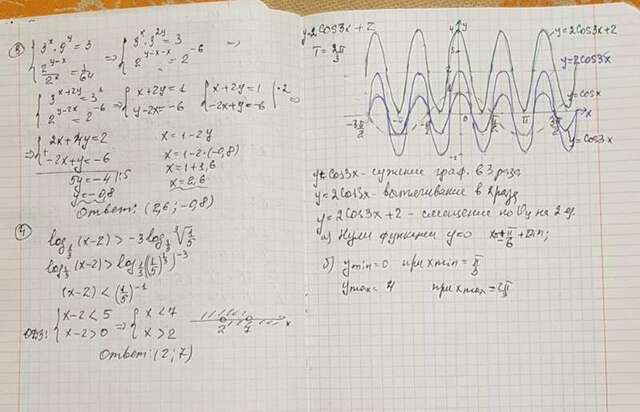 3) { 3^x · 9^y = 3 => { 3^x · 3^2y = 3 =>
2^(y-x) / 2^x = 1/64    2^(y-x-x) = 2^-6
{ 3^(x+2y) = 3^1 => { x+2y=1    { x+2y=1 | ·2 =>
2^(y-2x) = 2^-6    y-2x=-6    -2x+y=-6
=> { 2x+4y=2    x=1-2y
-2x+y=-6    x=1-2·(-0,8)
5y=-4 |:5    x=1+1,6
y=-0,8    x=2,6
Ответ: (2,6; -0,8)
4) log_1/3 (x-2) > -3 log_1/3 ∛(1/5)
log_1/3 (x-2) > log_1/3 ((1/5)^1/3)^-3
(x-2) < (1/5)^-1
ОДЗ: { x-2<5 => { x<7
x-2>0    x>2
2 7 x
Ответ: (2; 7)
y=2cos3x+2
T=2π/3
y
y=2cos3x+2
y=2cos3x
y=cosx
x
y=cos3x
-3π/2 0 π/2 π 3π/2
y=cos3x - сужение граф. в 3 раза
y=2cos3x - вытягивание в 2 раза
y=2cos3x+2 - смещение по Oy на 2 ед.
а) Нули функции y=0
б) y min=0 при x min = π/3
y max = 4 при x max = 2π/3